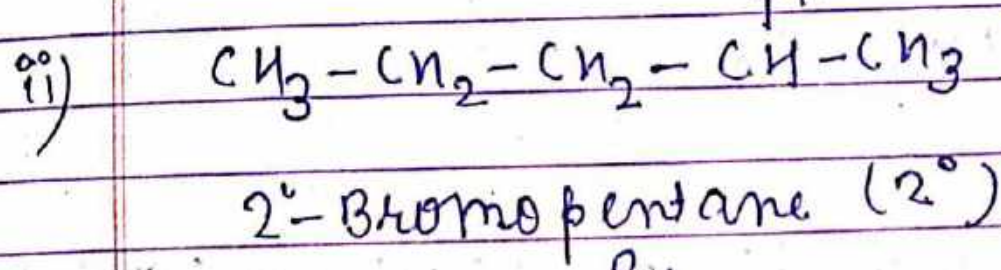 ii) CH3-CH2-CH2-CH-CH3
2-Bromopentane (2°)